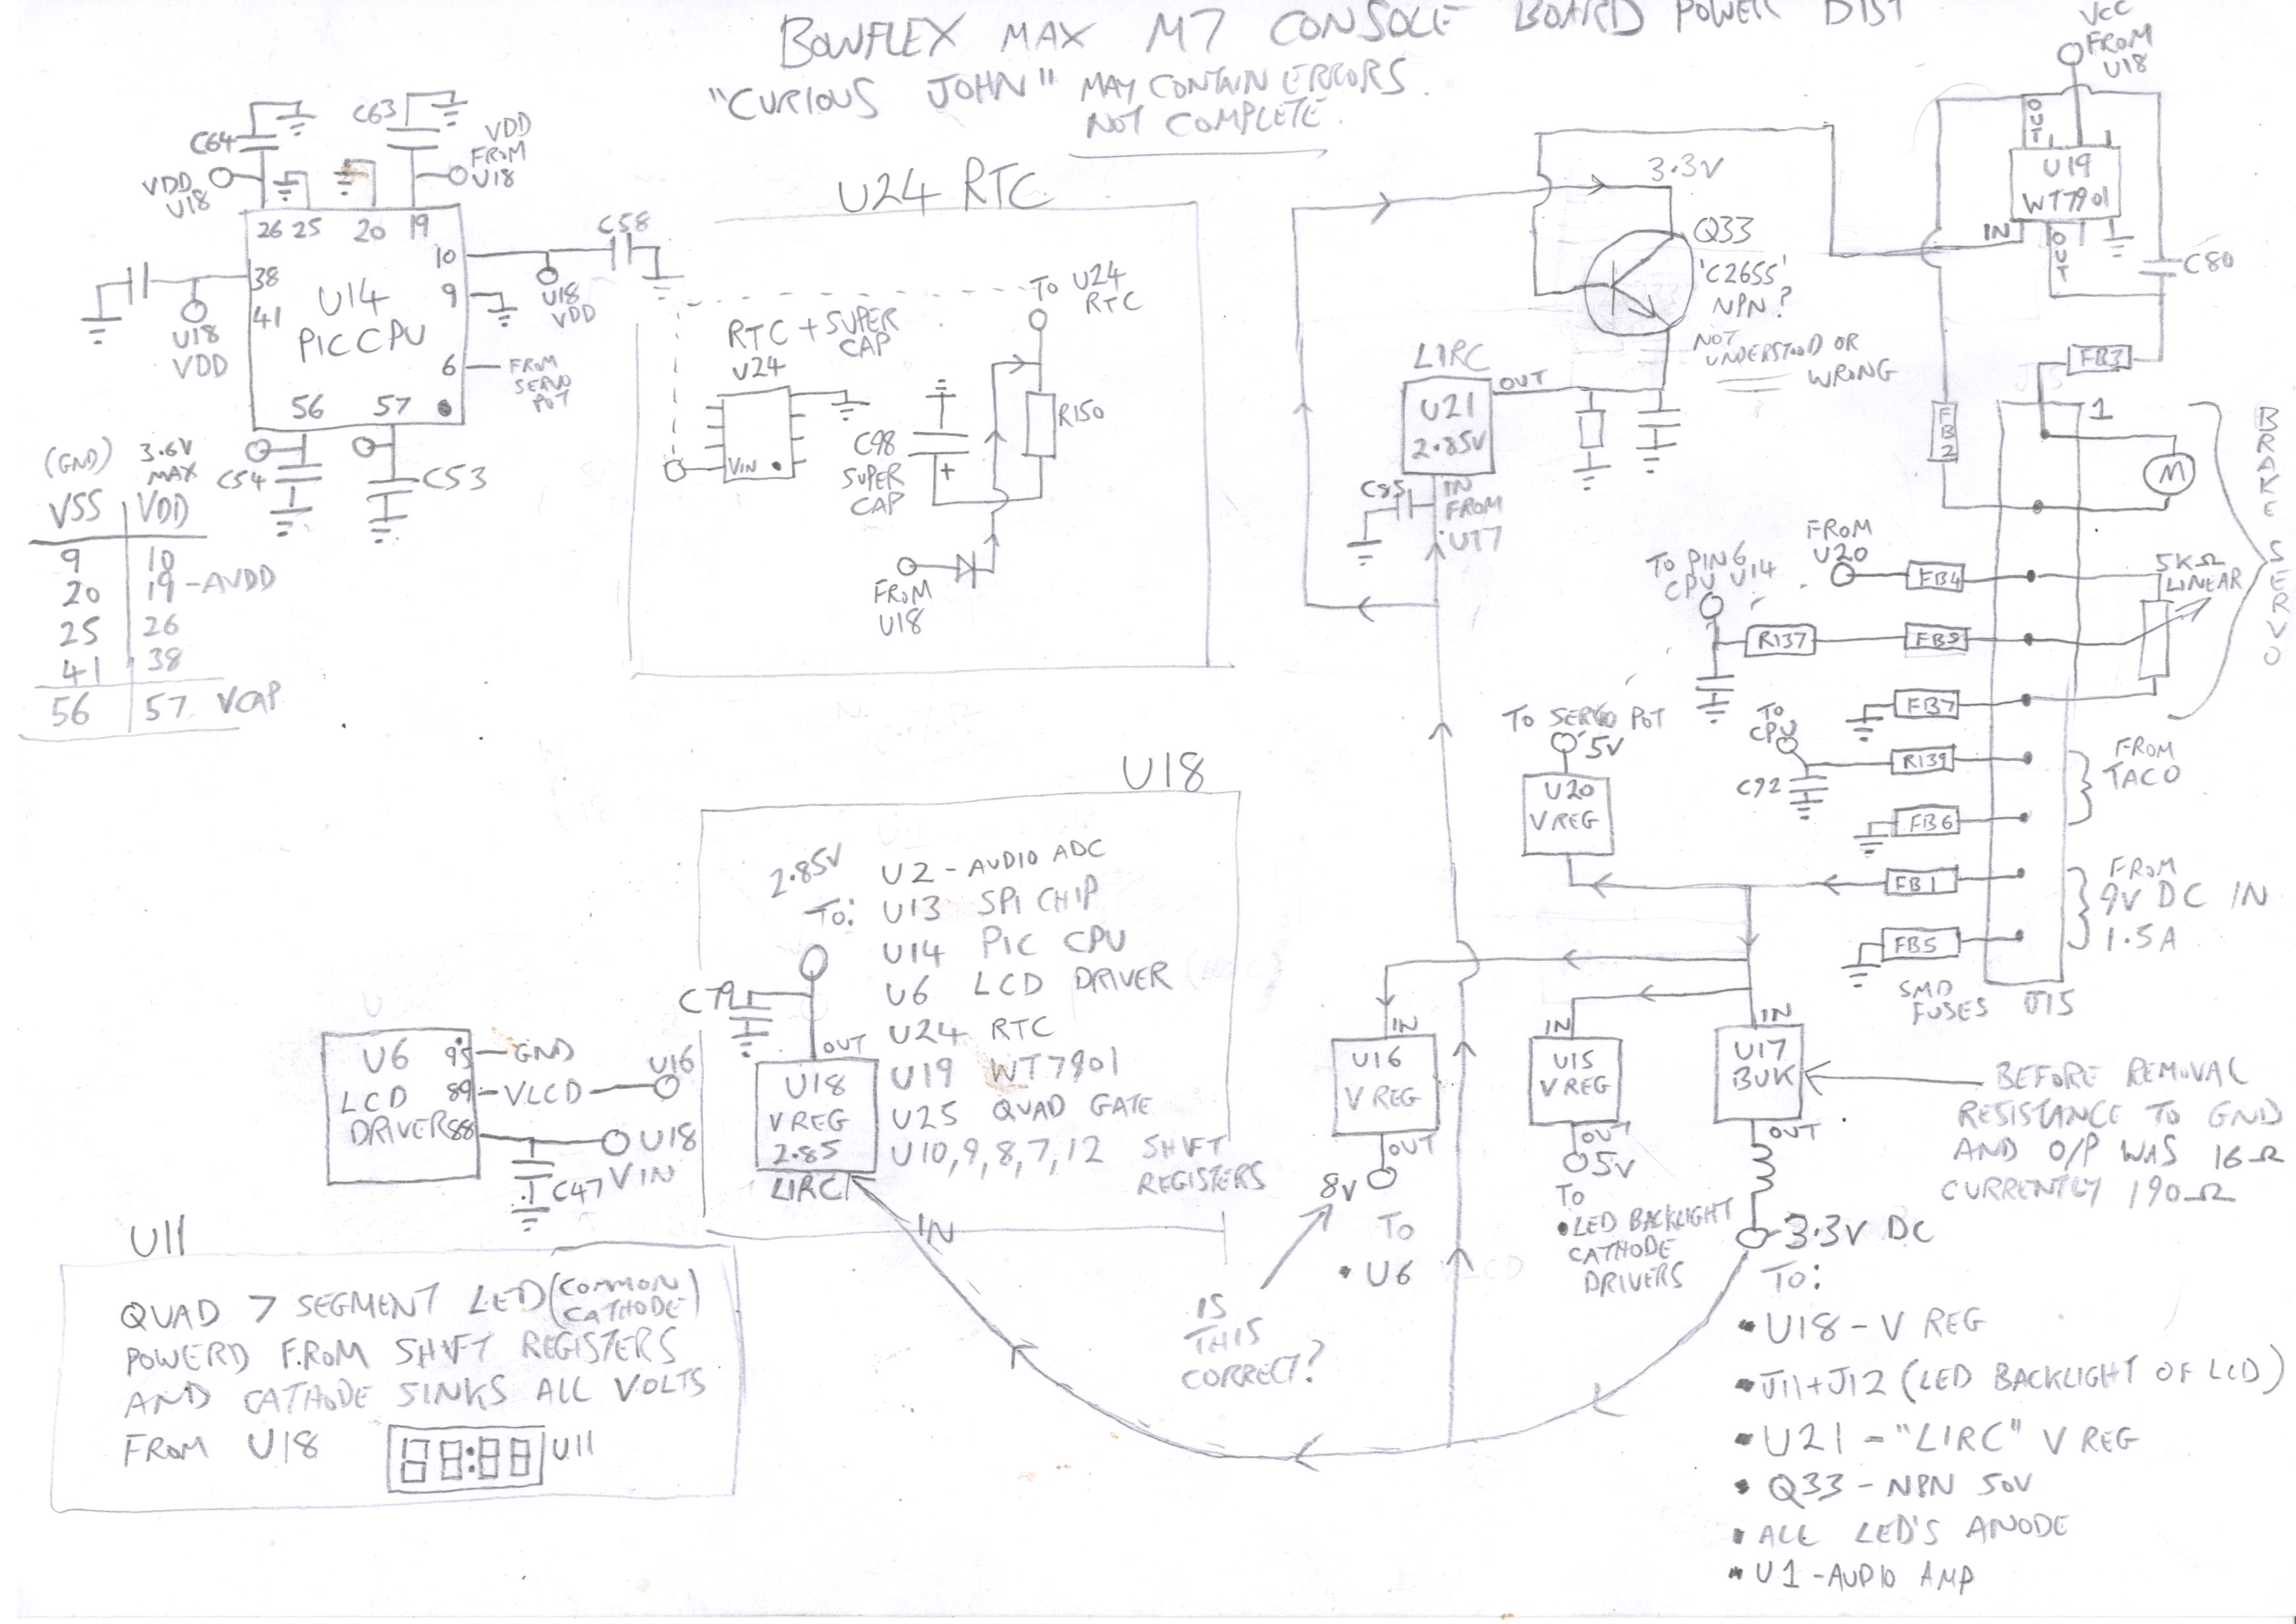 BOWFLEX MAX M7 CONSOLE BOARD POWER DIST
"CURIOUS JOHN" MAY CONTAIN ERRORS.
NOT COMPLETE.
C64
C63
VDD
FROM
U18
VDD
U18
26 25 20 19
10
9
6
38
41
U14
PIC CPU
56 57
C58
U18
VDD
FROM
SERVO
POT
U18
VDD
C54
C53
(GND) 3.6V
MAX
VSS VDD
9 10
20 19 - AVDD
25 26
41 38
56 57 VCAP
U24 RTC
TO U24
RTC
RTC + SUPER
CAP
U24
VIN
C98
SUPER
CAP
+
R150
FROM
U18
3.3V
Q33
'C2655'
NPN?
NOT
UNDERSTOOD OR
WRONG
LIRC
U21
2.85V
OUT
C85
IN
FROM
U17
VCC
FROM
U18
OUT
U19
WT7901
IN
OUT
C80
FB3
FB2
1
M
BRAKE SERVO
FROM
U20
FB4
5KΩ
LINEAR
TO PIN 6
CPU U14
R137
FB8
FB7
TO
CPU
R139
C92
FB6
FROM
TACO
FB1
FROM
9V DC IN
1.5A
FB5
SMD
FUSES
J15
TO SERVO POT
5V
U20
V REG
U18
2.85V
TO:
U2 - AUDIO ADC
U13 SPI CHIP
U14 PIC CPU
U6 LCD DRIVER
U24 RTC
U19 WT7901
U25 QUAD GATE
U10, 9, 8, 7, 12 SHIFT
REGISTERS
C79
OUT
U18
V REG
2.85
LIRC
IN
U6
LCD
DRIVER
95 GND
89 VLCD
88
U16
U18
VIN
C47
IN
U16
V REG
OUT
8V
TO
• U6
IS
THIS
CORRECT?
IN
U15
V REG
OUT
5V
TO
• LED BACKLIGHT
CATHODE
DRIVERS
IN
U17
BUK
OUT
BEFORE REMOVAL
RESISTANCE TO GND
AND O/P WAS 16Ω
CURRENTLY 190Ω
3.3V DC
TO:
• U18 - V REG
• J11 + J12 (LED BACKLIGHT OF LCD)
• U21 - "LIRC" V REG
• Q33 - NPN 50V
• ALL LED'S ANODE
• U1 - AUDIO AMP
U11
QUAD 7 SEGMENT LED (COMMON
CATHODE)
POWERD FROM SHIFT REGISTERS
AND CATHODE SINKS ALL VOLTS
FROM U18
88:88
U11